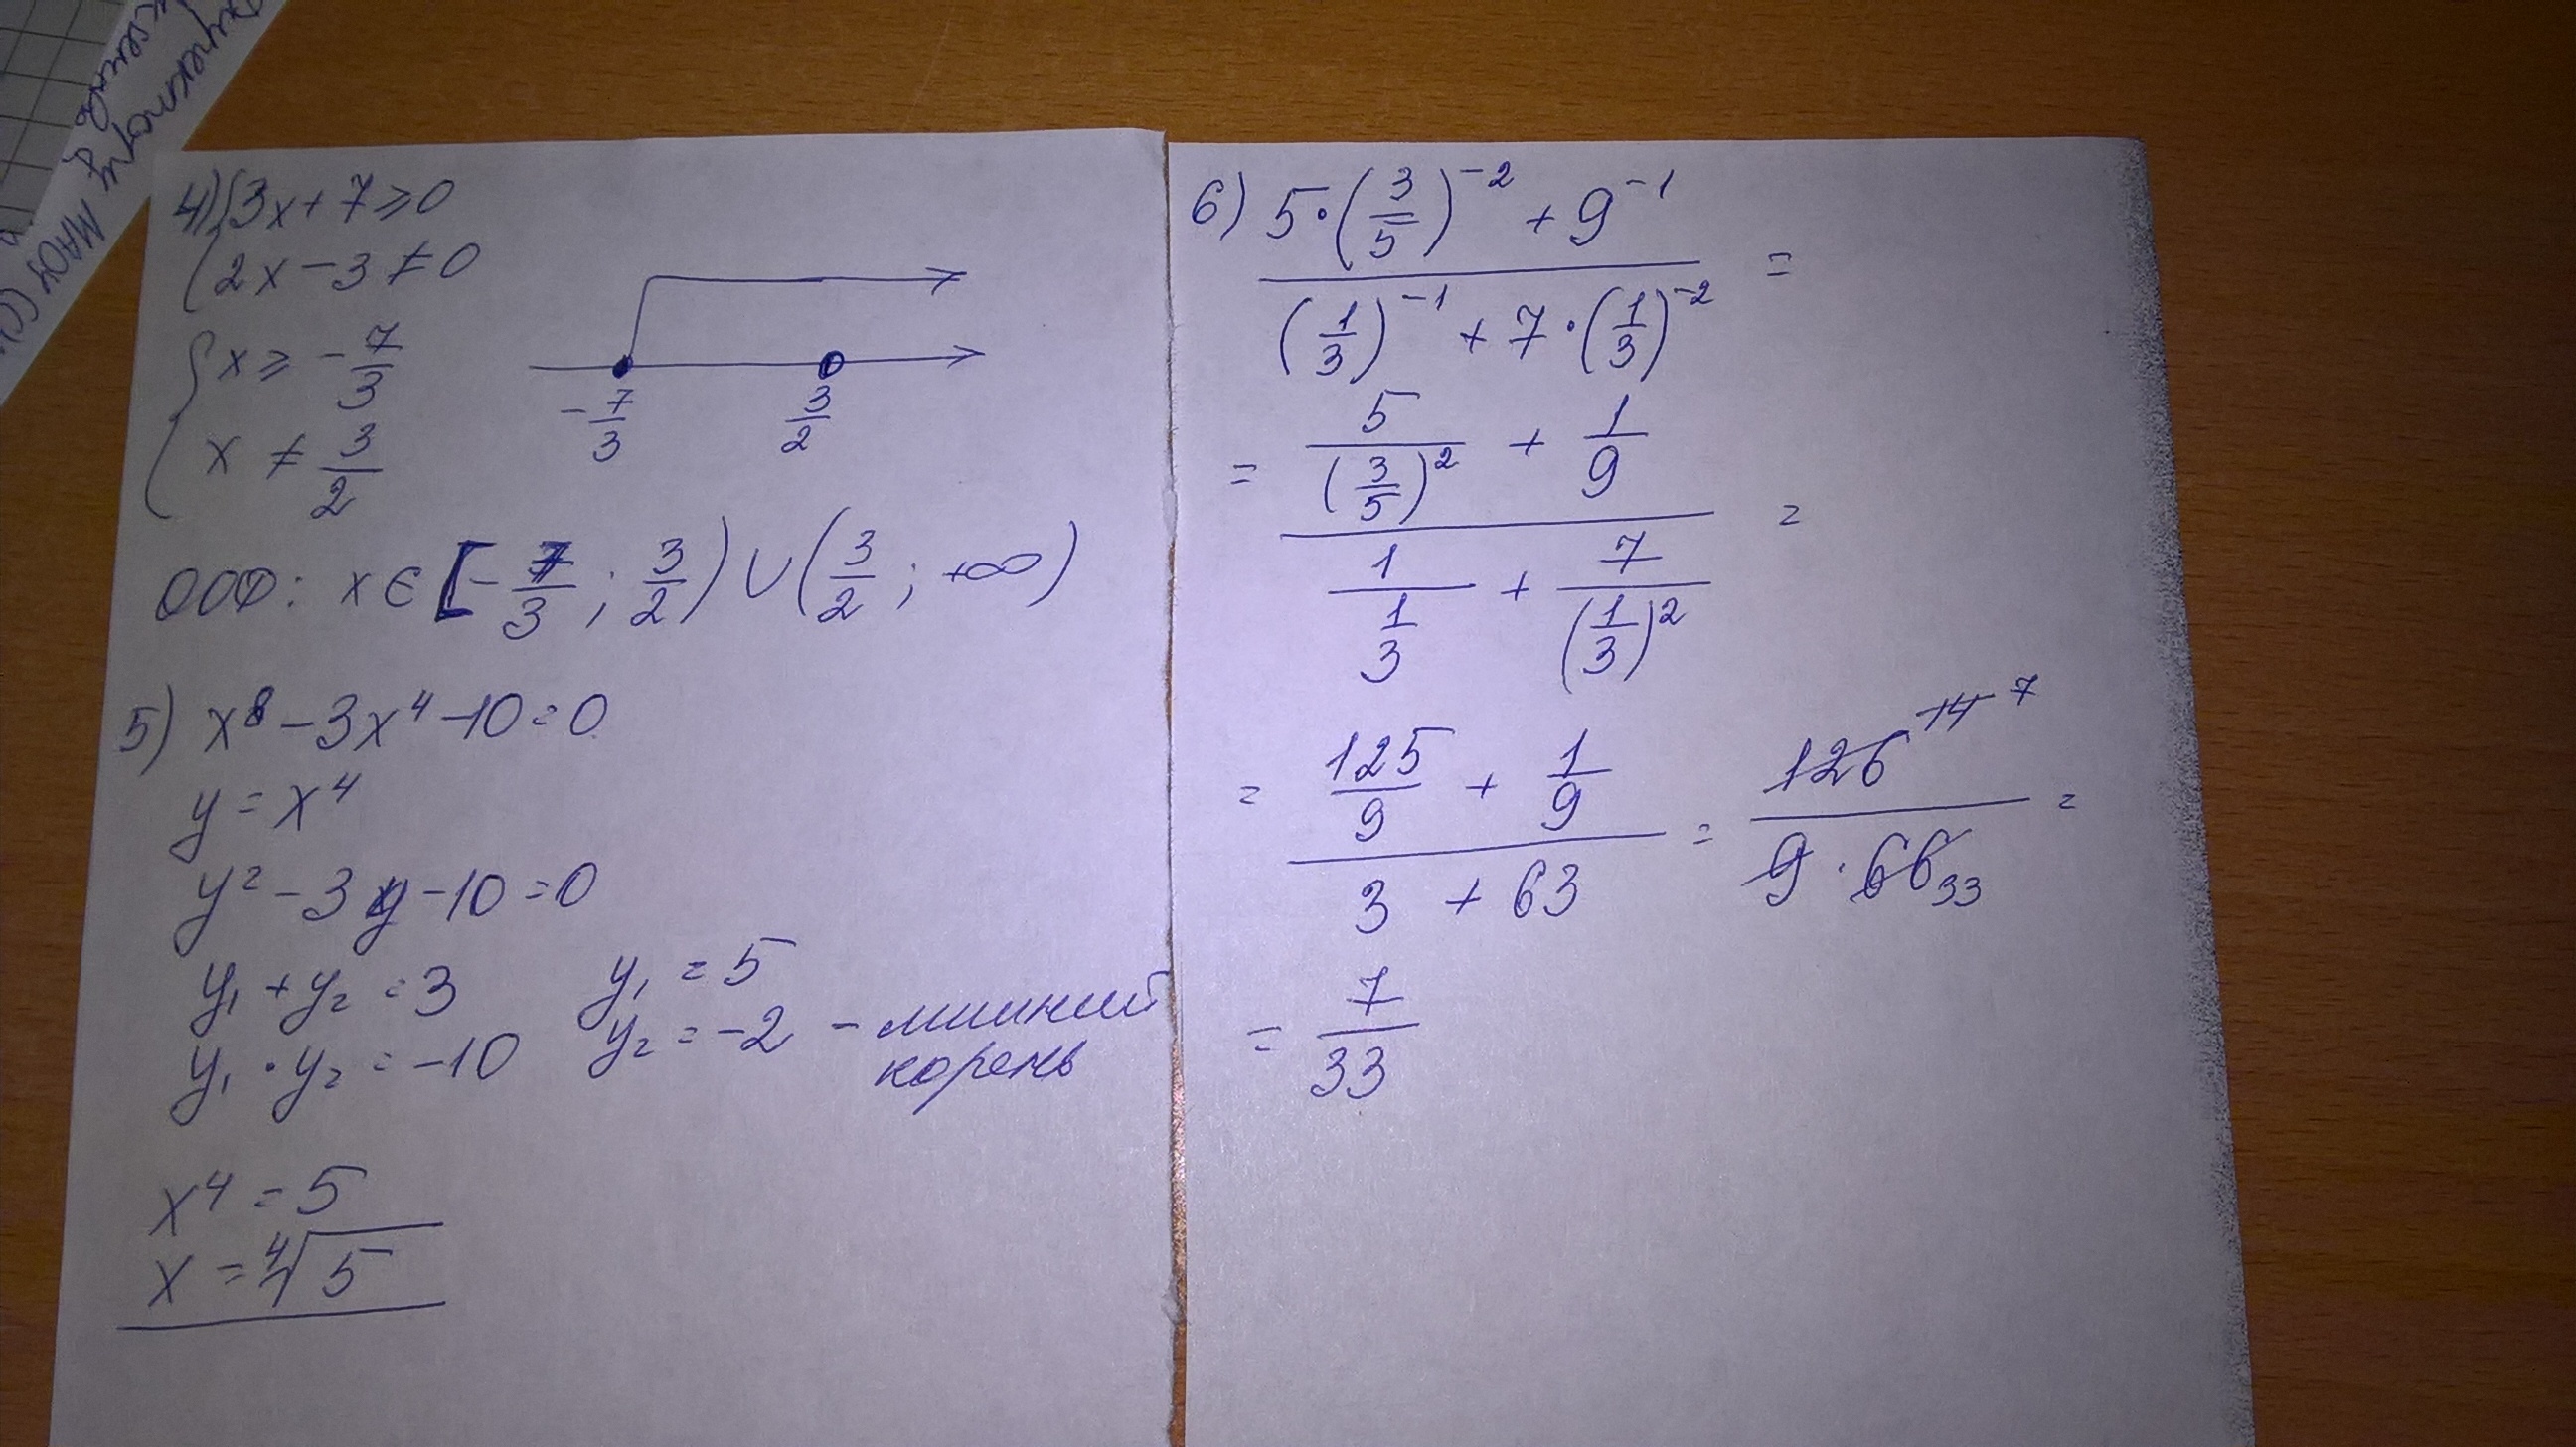 директору
МАОУ
4) {3x + 7 ⩾ 0
{2x - 3 ≠ 0
{x ⩾ -7/3
{x ≠ 3/2
-7/3 3/2
ООФ: x ∈ [-7/3; 3/2) ∪ (3/2; +∞)
5) x⁸ - 3x⁴ - 10 = 0
y = x⁴
y² - 3y - 10 = 0
y₁ + y₂ = 3 y₁ = 5
y₁ · y₂ = -10 y₂ = -2 - лишний
корень
x⁴ = 5
x = ⁴√5
6) (5·(3/5)⁻² + 9⁻¹) / ((1/3)⁻¹ + 7·(1/3)⁻²) =
= (5/(3/5)² + 1/9) / (1/(1/3) + 7/(1/3)²) =
= (125/9 + 1/9) / (3 + 63) = 126 14 7 / (9 · 66 33) =
= 7/33